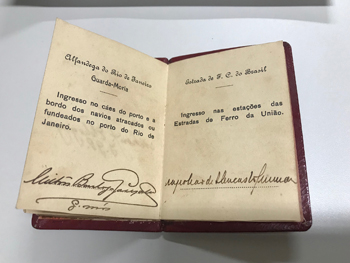 Alfandega do Rio de Janeiro
Guarda-Moria
Ingresso no cáes do porto e a
bordo dos navios atracados ou
fundeados no porto do Rio de
Janeiro.
Estrada de F. C. do Brasil
Ingresso nas estações das
Estradas de Ferro da União.